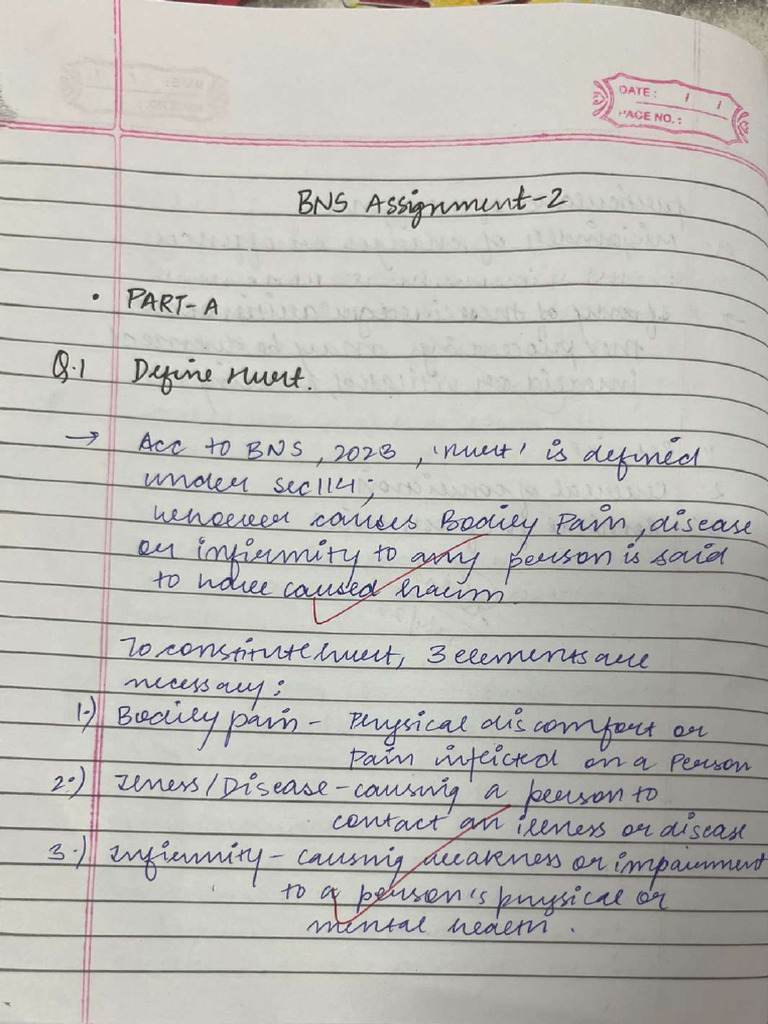 DATE: / /
PAGE NO.:
BNS Assignment-2
• PART-A
Q.1 Define Hurt.
→ Acc to BNS, 2023, 'hurt' is defined
under sec 114;
whoever causes Bodily Pain, disease
or infirmity to any person is said
to have caused harm.
To constitute hurt, 3 elements are
necessary:
1.) Bodily pain - Physical discomfort or
Pain inflicted on a Person
2.) Illness/Disease - causing a person to
contact an illness or disease
3.) Infirmity - causing weakness or impairment
to a person's physical or
mental health.